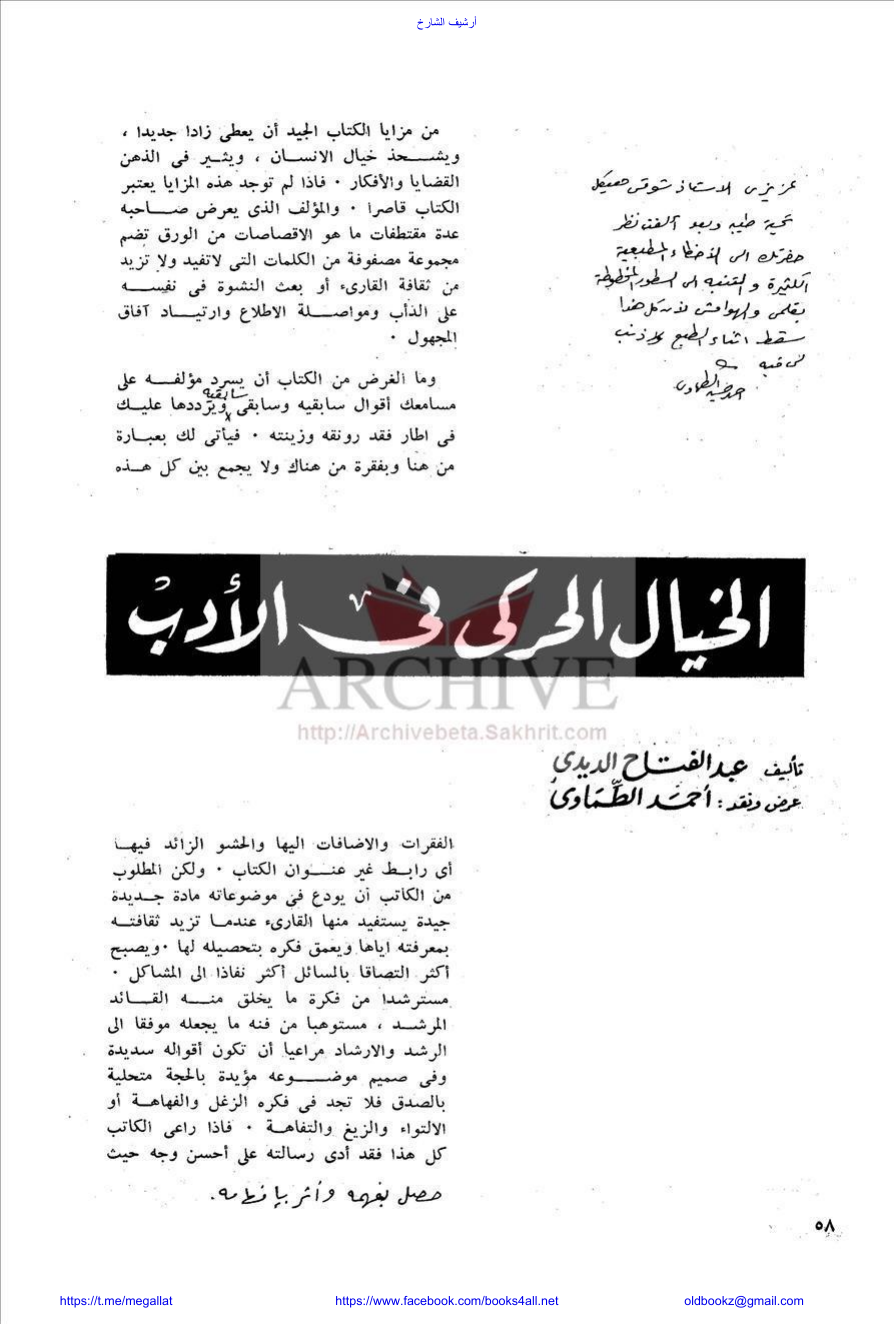 أرشيف الشارخ
عزيزى الاستاذ شوقى هيكل
تحية طيبة وبعد ألفت نظر
حضرتك الى الأخطاء المطبعية
الكثيرة والتنبه الى السطور المخطوطة
بقلمى والهوامش لأن كل هذا
سقط اثناء الطبع بلا ذنب
لى فيه
من مزايا الكتاب الجيد أن يعطى زادا جديدا ،
ويشحذ خيال الانسان ، ويثير فى الذهن
القضايا والأفكار ٠ فاذا لم توجد هذه المزايا يعتبر
الكتاب قاصرا ٠ والمؤلف الذى يعرض صاحبه
عدة مقتطفات ما هو الاقصاصات من الورق تضم
مجموعة مصفوفة من الكلمات التى لاتفيد ولا تزيد
من ثقافة القارىء أو بعث النشوة فى نفسه
على الدأب ومواصلة الاطلاع وارتياد آفاق
المجهول ٠
وما الغرض من الكتاب أن يسرد مؤلفه على
مسامعك أقوال سابقيه وسابقى سابقيه ويرددها عليك
فى اطار فقد رونقه وزينته ٠ فيأتى لك بعبارة
من هنا وبفقرة من هناك ولا يجمع بين كل هذه
الخيال الحركى فى الأدب
ARCHIVE
http://Archivebeta.Sakhrit.com
تأليف عبد الفتاح الديدى
عرض ونقد : أحمد الطماوى
الفقرات والاضافات اليها والحشو الزائد فيها
أى رابط غير عنوان الكتاب ٠ ولكن المطلوب
من الكاتب أن يودع فى موضوعاته مادة جديدة
جيدة يستفيد منها القارىء عندما تزيد ثقافته
بمعرفته اياها ويعمق فكره بتحصيله لها ٠ ويصبح
أكثر التصاقا بالمسائل أكثر نفاذا الى المشاكل ٠
مسترشدا من فكرة ما يخلق منه القائد
المرشد ، مستوهبا من فنه ما يجعله موفقا الى
الرشد والارشاد مراعيا أن تكون أقواله سديدة
وفى صميم موضوعه مؤيدة بالحجة متحلية
بالصدق فلا تجد فى فكره الزغل والفهاهة أو
الالتواء والزيغ والتفاهة ٠ فاذا راعى الكاتب
كل هذا فقد أدى رسالته على أحسن وجه حيث
٥٨
https://t.me/megallat
https://www.facebook.com/books4all.net
oldbookz@gmail.com